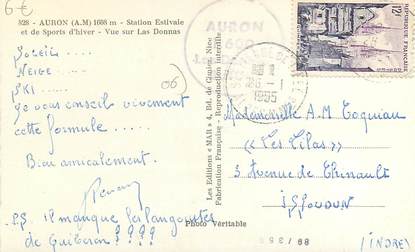 6€
328 - AURON (A.M) 1608 m - Station Estivale
et de Sports d'hiver - Vue sur Las Donnas
AURON
1600
12F
REPUBLIQUE FRANÇAISE
1955
06
Soleil ....
Neige ....
SKI ....
Je vous conseille vivement
cette formule ....
Bien amicalement.
P.S. Il manque les langoustes
de Quiberon ? ? ? ?
Les Editions « MAR » 4, Bd. de Nice
Fabrication Française - Reproduction interdite
Photo Véritable
Mademoiselle A. M Toquiau
« Les Lilas »
3 Avenue de Thinault
ISSOUDUN
(INDRE)